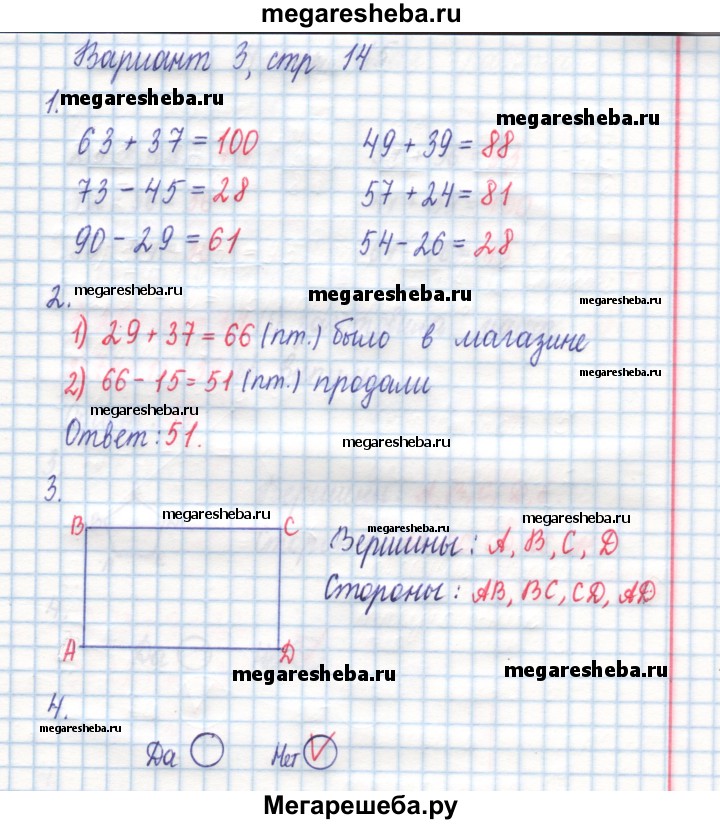 megaresheba.ru
Вариант 3, стр 14
1. megaresheba.ru
megaresheba.ru
63 + 37 = 100 49 + 39 = 88
73 - 45 = 28 57 + 24 = 81
90 - 29 = 61 54 - 26 = 28
2. megaresheba.ru megaresheba.ru megaresheba.ru
1) 29 + 37 = 66 (пт.) было в магазине
2) 66 - 15 = 51 (пт.) продали
megaresheba.ru
megaresheba.ru
Ответ: 51.
megaresheba.ru
3.
megaresheba.ru megaresheba.ru megaresheba.ru
B C
Вершины: A, B, C, D
Стороны: AB, BC, CD, AD
A D
megaresheba.ru megaresheba.ru
4.
megaresheba.ru
Да Нет
Мегарешеба.ру